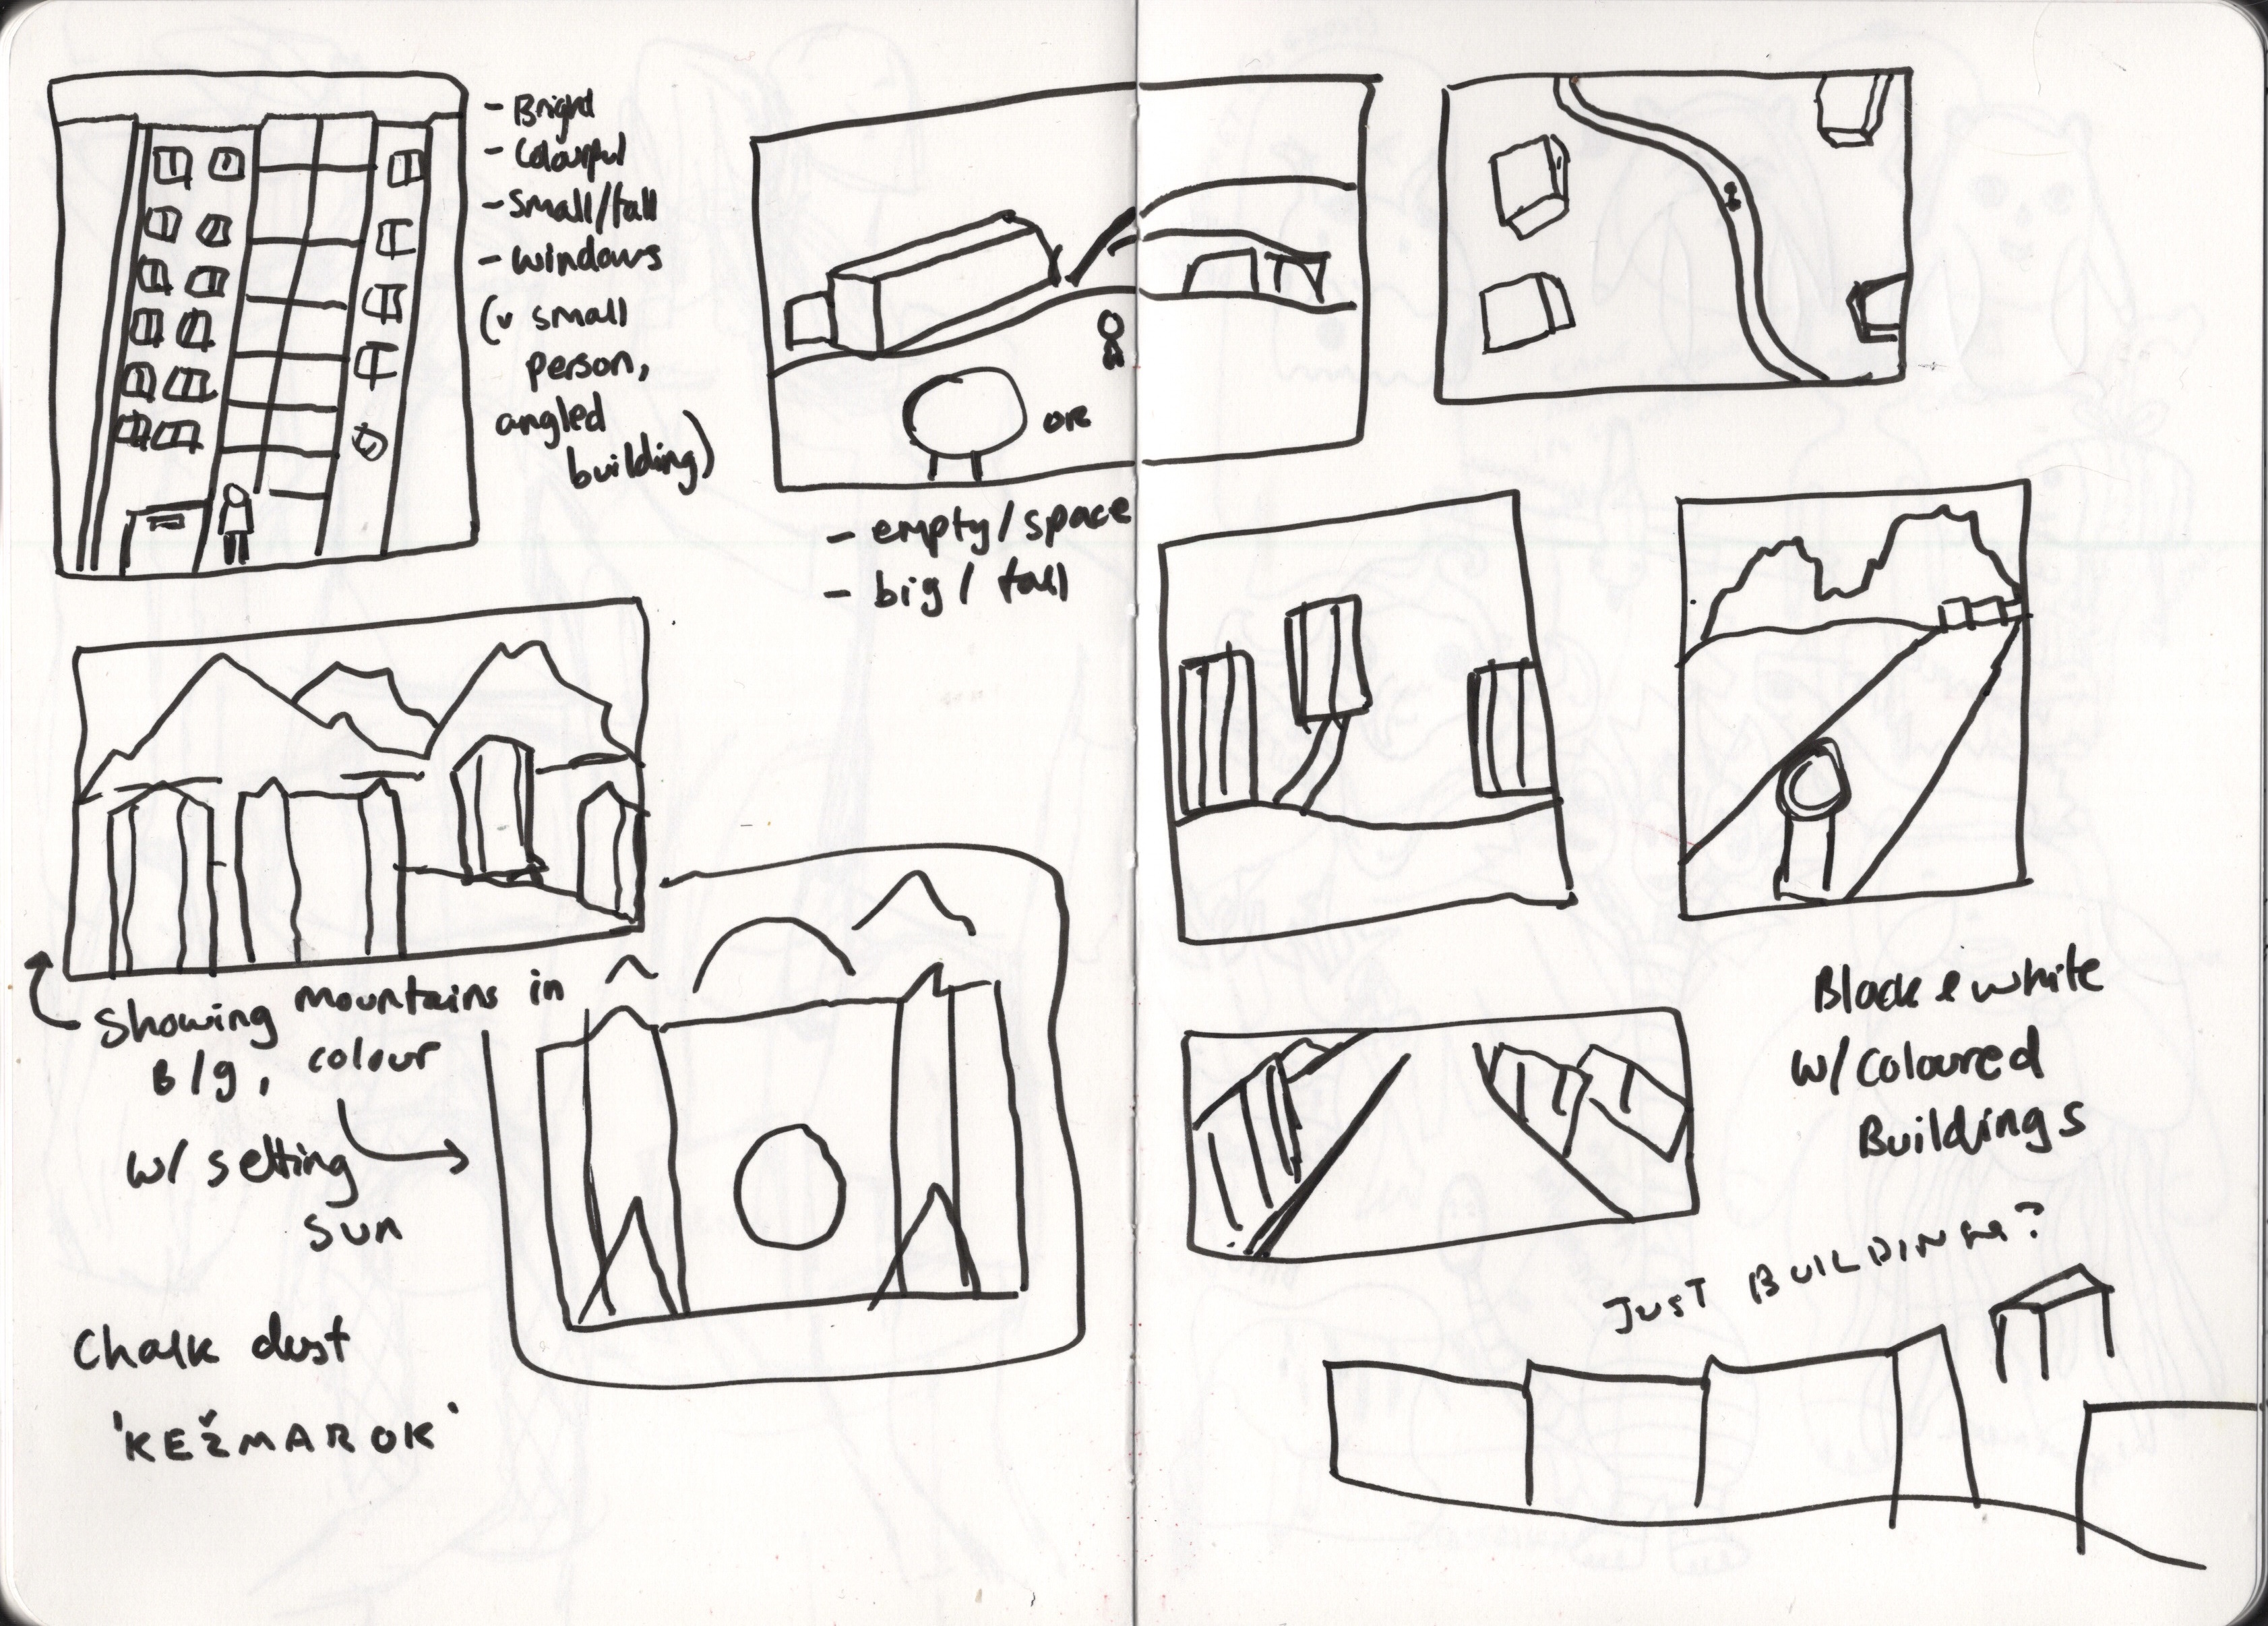 - Bright
- Colourful
- Small/tall
- windows
(v small
person,
angled
building)
or
- empty/space
- big/tall
Showing mountains in
B/g, colour
w/ setting
sun
Chalk dust
'KEŽMAROK'
Black & white
w/coloured
Buildings
JUST BUILDINGS?